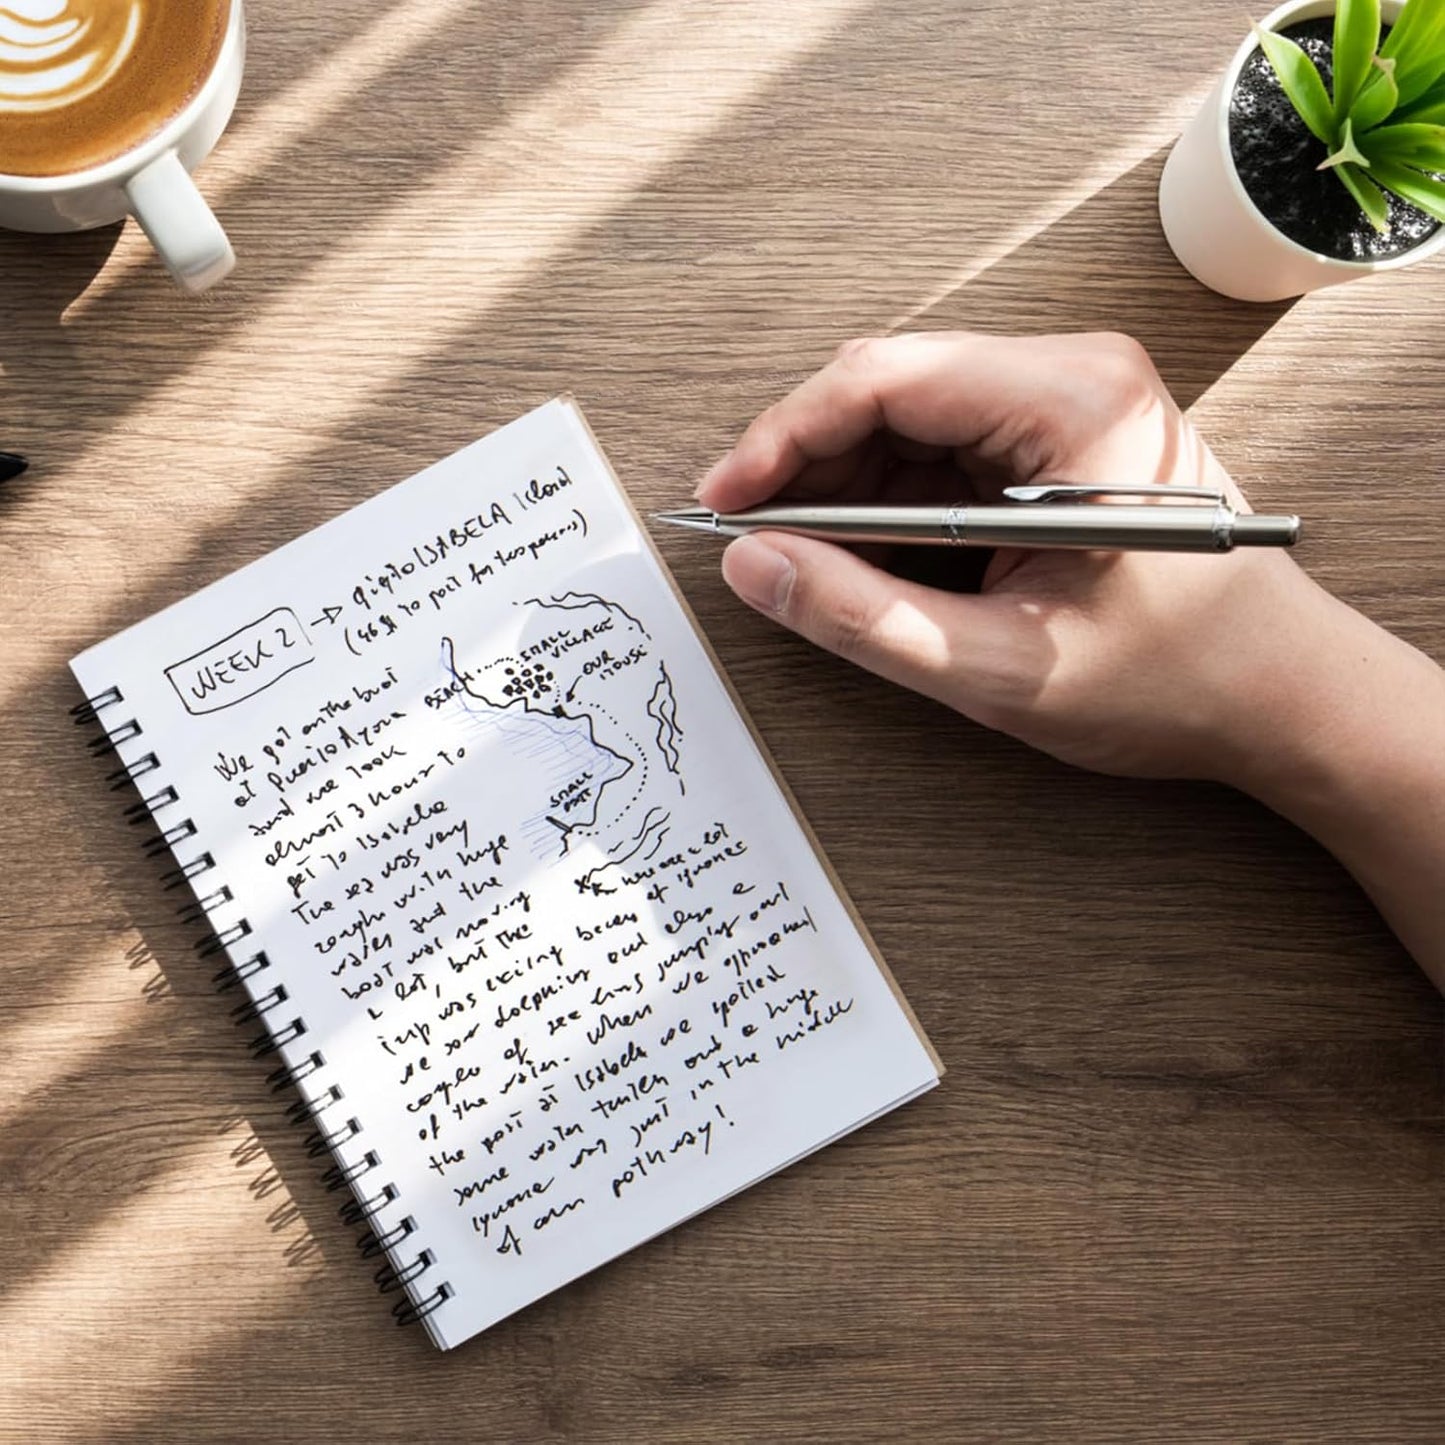 WEEK 2 → ISABELA Island
(46 $ to for two persons)
SMALL
VILLAGE
OUR
HOUSE
BEACH
SMALL
PORT
here are a lot
of iguanas
We got on the boat
at Puerto Ayora
and we took
almost 3 hours to
get to Isabela
The sea was very
rough with huge
waves and the
boat was moving
a lot, but the
trip was exciting because
we saw dolphins and also a
couple of sea lions jumping out
of the water. When we approached
the port at Isabela we spotted
some water turtles and a huge
iguana was just in the middle
of our pathway!